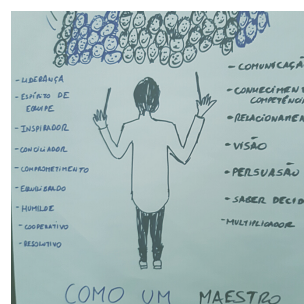 - LIDERANÇA
- ESPÍRITO DE
EQUIPE
- INSPIRADOR
- CONCILIADOR
- COMPROMETIMENTO
- EQUILIBRADO
- HUMILDE
- COOPERATIVO
- RESOLUTIVO
- COMUNICAÇÃ
- CONHECIMEN
COMPETÊNCI
- RELACIONAMEN
- VISÃO
- PERSUASÃO
- SABER DECID
- MULTIPLICADOR
COMO UM MAESTRO